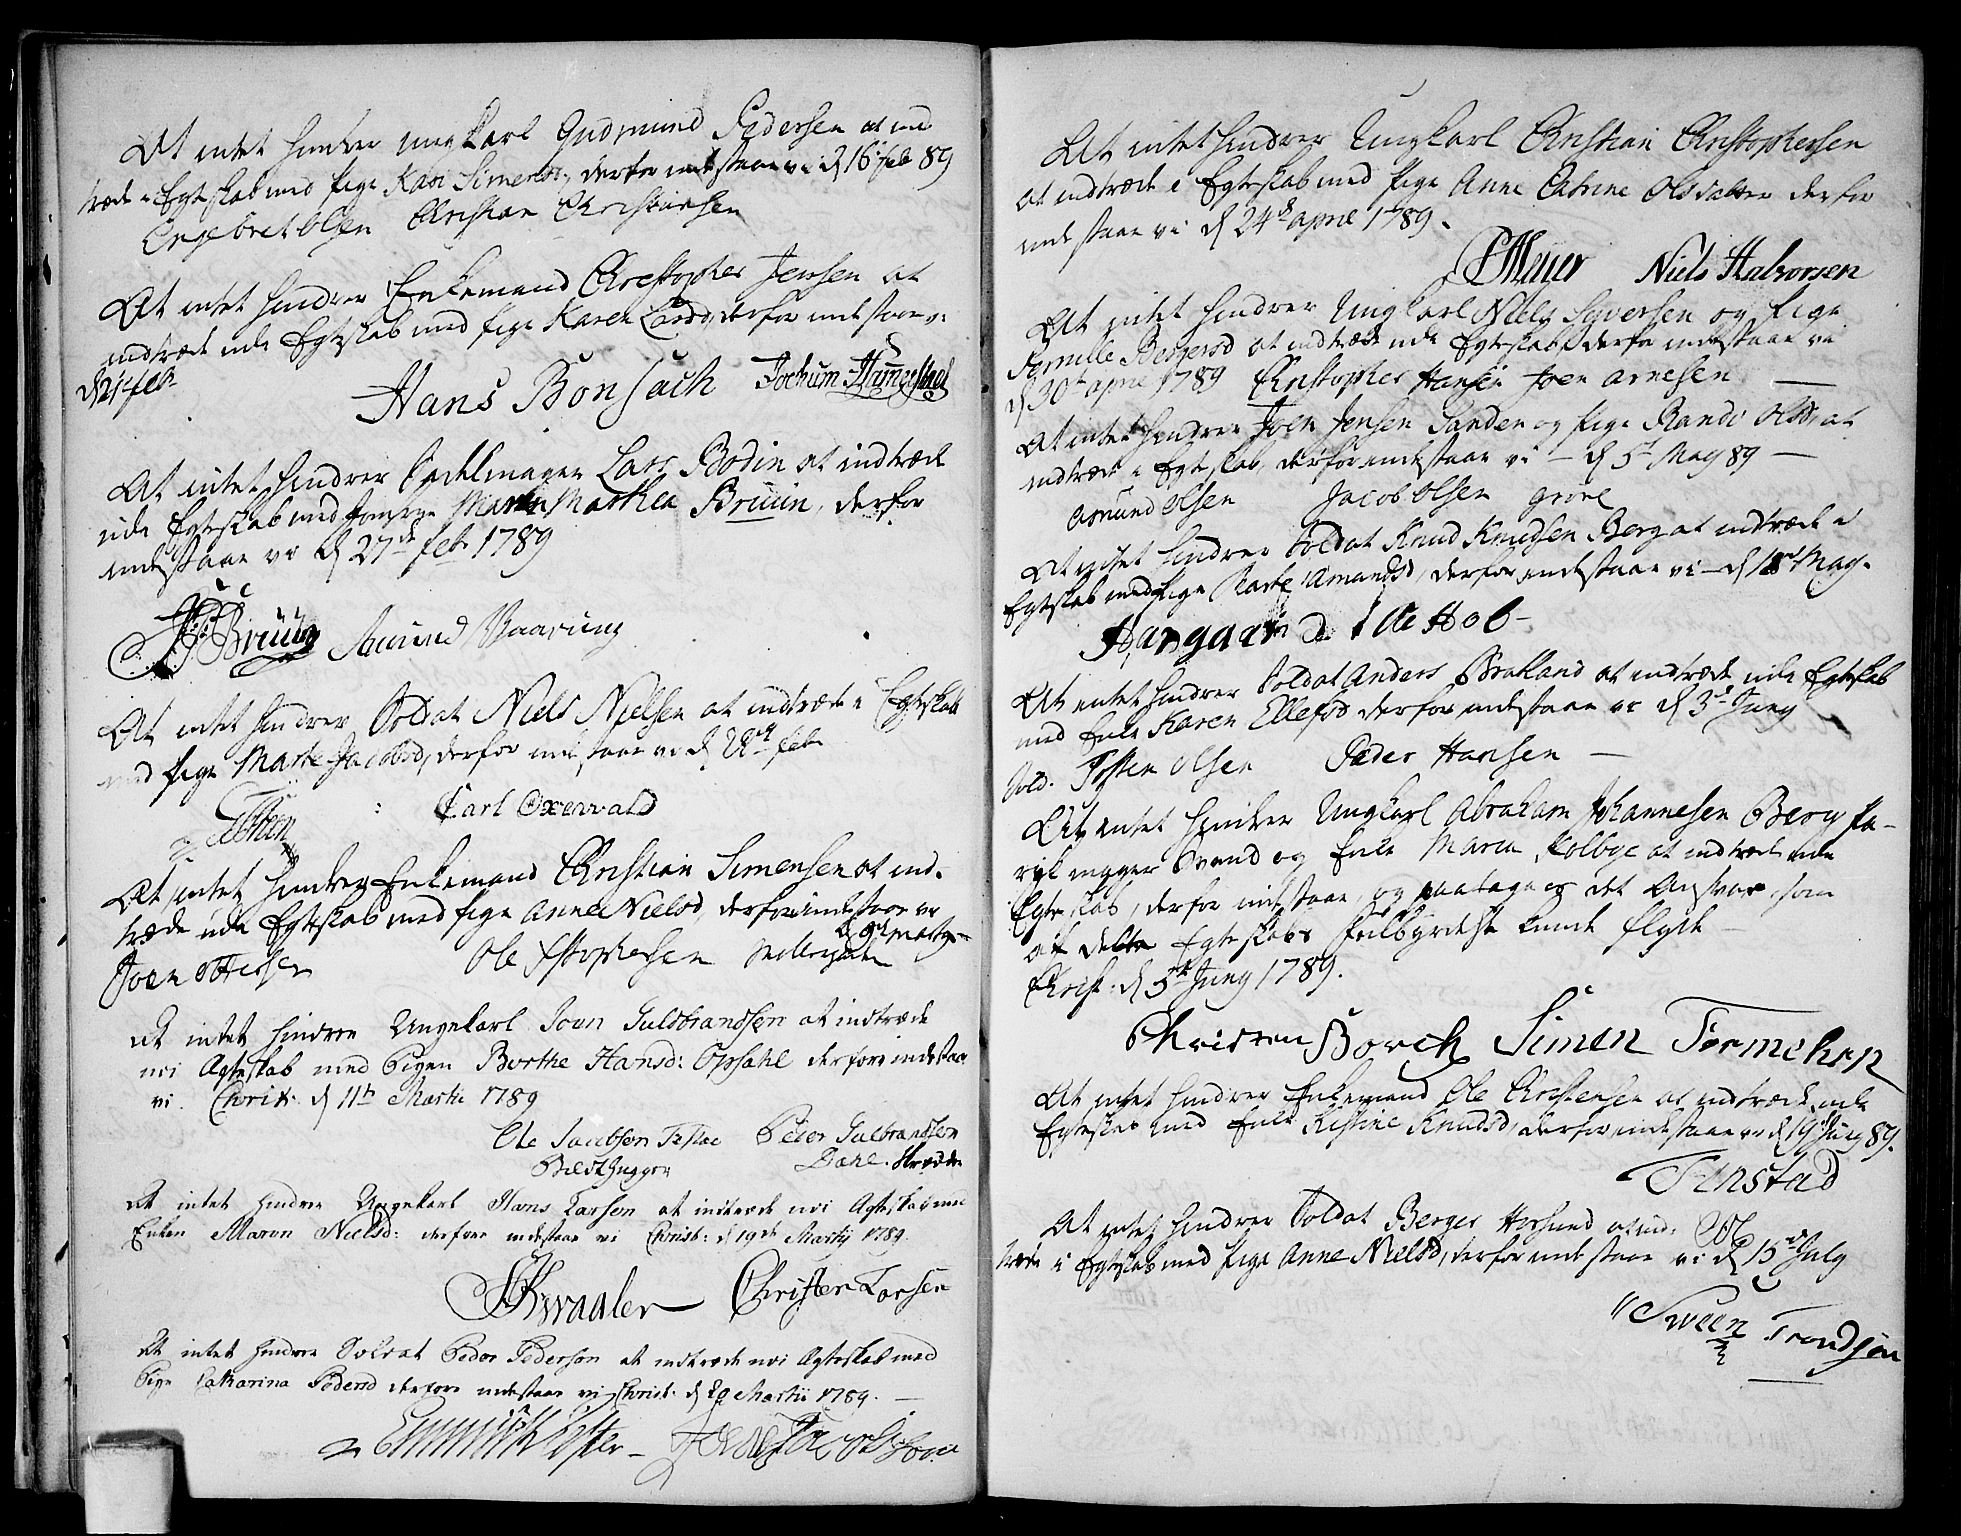 At intet hindrer ungkarl Gudmund Pedersen at ind
træde i Egteskab med pige Kari Simensd, derfor indestaar vi d 16 feb 89
Engebret Olsen Christian Christiansen
At intet hindrer Enkemand Christopher Jensen at
indtræde udi Egteskab med pige Karen Larsd, derfor indestaar vi
d 21 feb
Hans Bonsach Jochum
At intet hindrer Sadelmager Lars Bodin at indtræde
udi Egteskab med Marthea Bruun, derfor
indestaar vi d 27de feb 1789
Bruun Amund Vaarung
At intet hindrer Soldat Niels Nielsen at indtræde i Egteskab
med pige Marte Jacobsd, derfor indestaar vi d 28d feb
Carl Oxenvald
At intet hindrer Enkemand Christian Simensen at ind-
træde udi Egteskab med pige Anne Nielsd, derfor indestaar vi
d 9d martz
Joen Ole Xstophersen
At intet hindrer Ungekarl Joen Guldbrandsen at indtræde
udi Ægteskab med Pigen Berthe Hansd: Opsahl derfore indestaar
vi. Christ: d 11th Martii 1789
Ole Jacobsen Peder Gulbrandsen
Bildthugger Dahl.
At intet hindrer Ungekarl Hans Larsen at indtræde udi Ægteskab med
Enken Maren Nielsd: derfore indestaar vi Christ: d 19de Martij 1789.
Kwaaler Christen Larsen
At intet hindrer Soldat Peder Pedersen at indtræde udi Ægteskab med
Pige Catharina Pedersd derfore indestaar vi Christ: d 20 Martii 1789.
At intet hindrer Ungkarl Christian Christophersen
at indtræde i Egteskab med pige Anne Catrine Olsdatter derfor
indestaar vi d 24d april 1789.
Meyer Niels Halvorsen
At intet hindrer Ungkarl Niels Syversen og pige
Pernille Bergersd at indtræde udi Egteskab, derfor indestaar vi
d 30te april 1789 Christopher Hansen Joen Arnesen
At intet hindrer Joen Jensen Sanden og pige Randi Olsd at
indtræde i Egteskab, derfor indestaar vi – d 5t May 89 –
Asmund Olsen Jacob Olsen
At intet hindrer Soldat Knud Knudsen Berg at indtræde i
Egteskab med pige Amundsd, derfor indestaar vi – d 18 May.
At intet hindrer Soldat Anders Bratland at indtræde udi Egteskab
med Enke Karen Ellefsd derfor indestaar vi d 3d Juny
Sold. Tosten Olsen Peder Hansen –
At intet hindrer Ungkarl Abraham Johannesen Berg fa-
Svend og Enke Maren Kolbye at indtræde udi
Egteskab, derfor indestaar, og paatager os det Ansvar, som
af dette Egteskabs fuldbyrdelse kunde flyde –
Christ: d 5te Juny 1789.
Christen Borch Simen Tormehsen
At intet hindrer Enkemand Ole Christensen at indtræde udi
Egteskab med Enke Kistine Knudsd, derfor indestaar vi d 19 Juny 89.
Finstad
At intet hindrer Soldat Berger Horsund at ind:
træde i Egteskab med pige Anne Nielsd, derfor indestaar vi d 15de July
Sween Trondsen